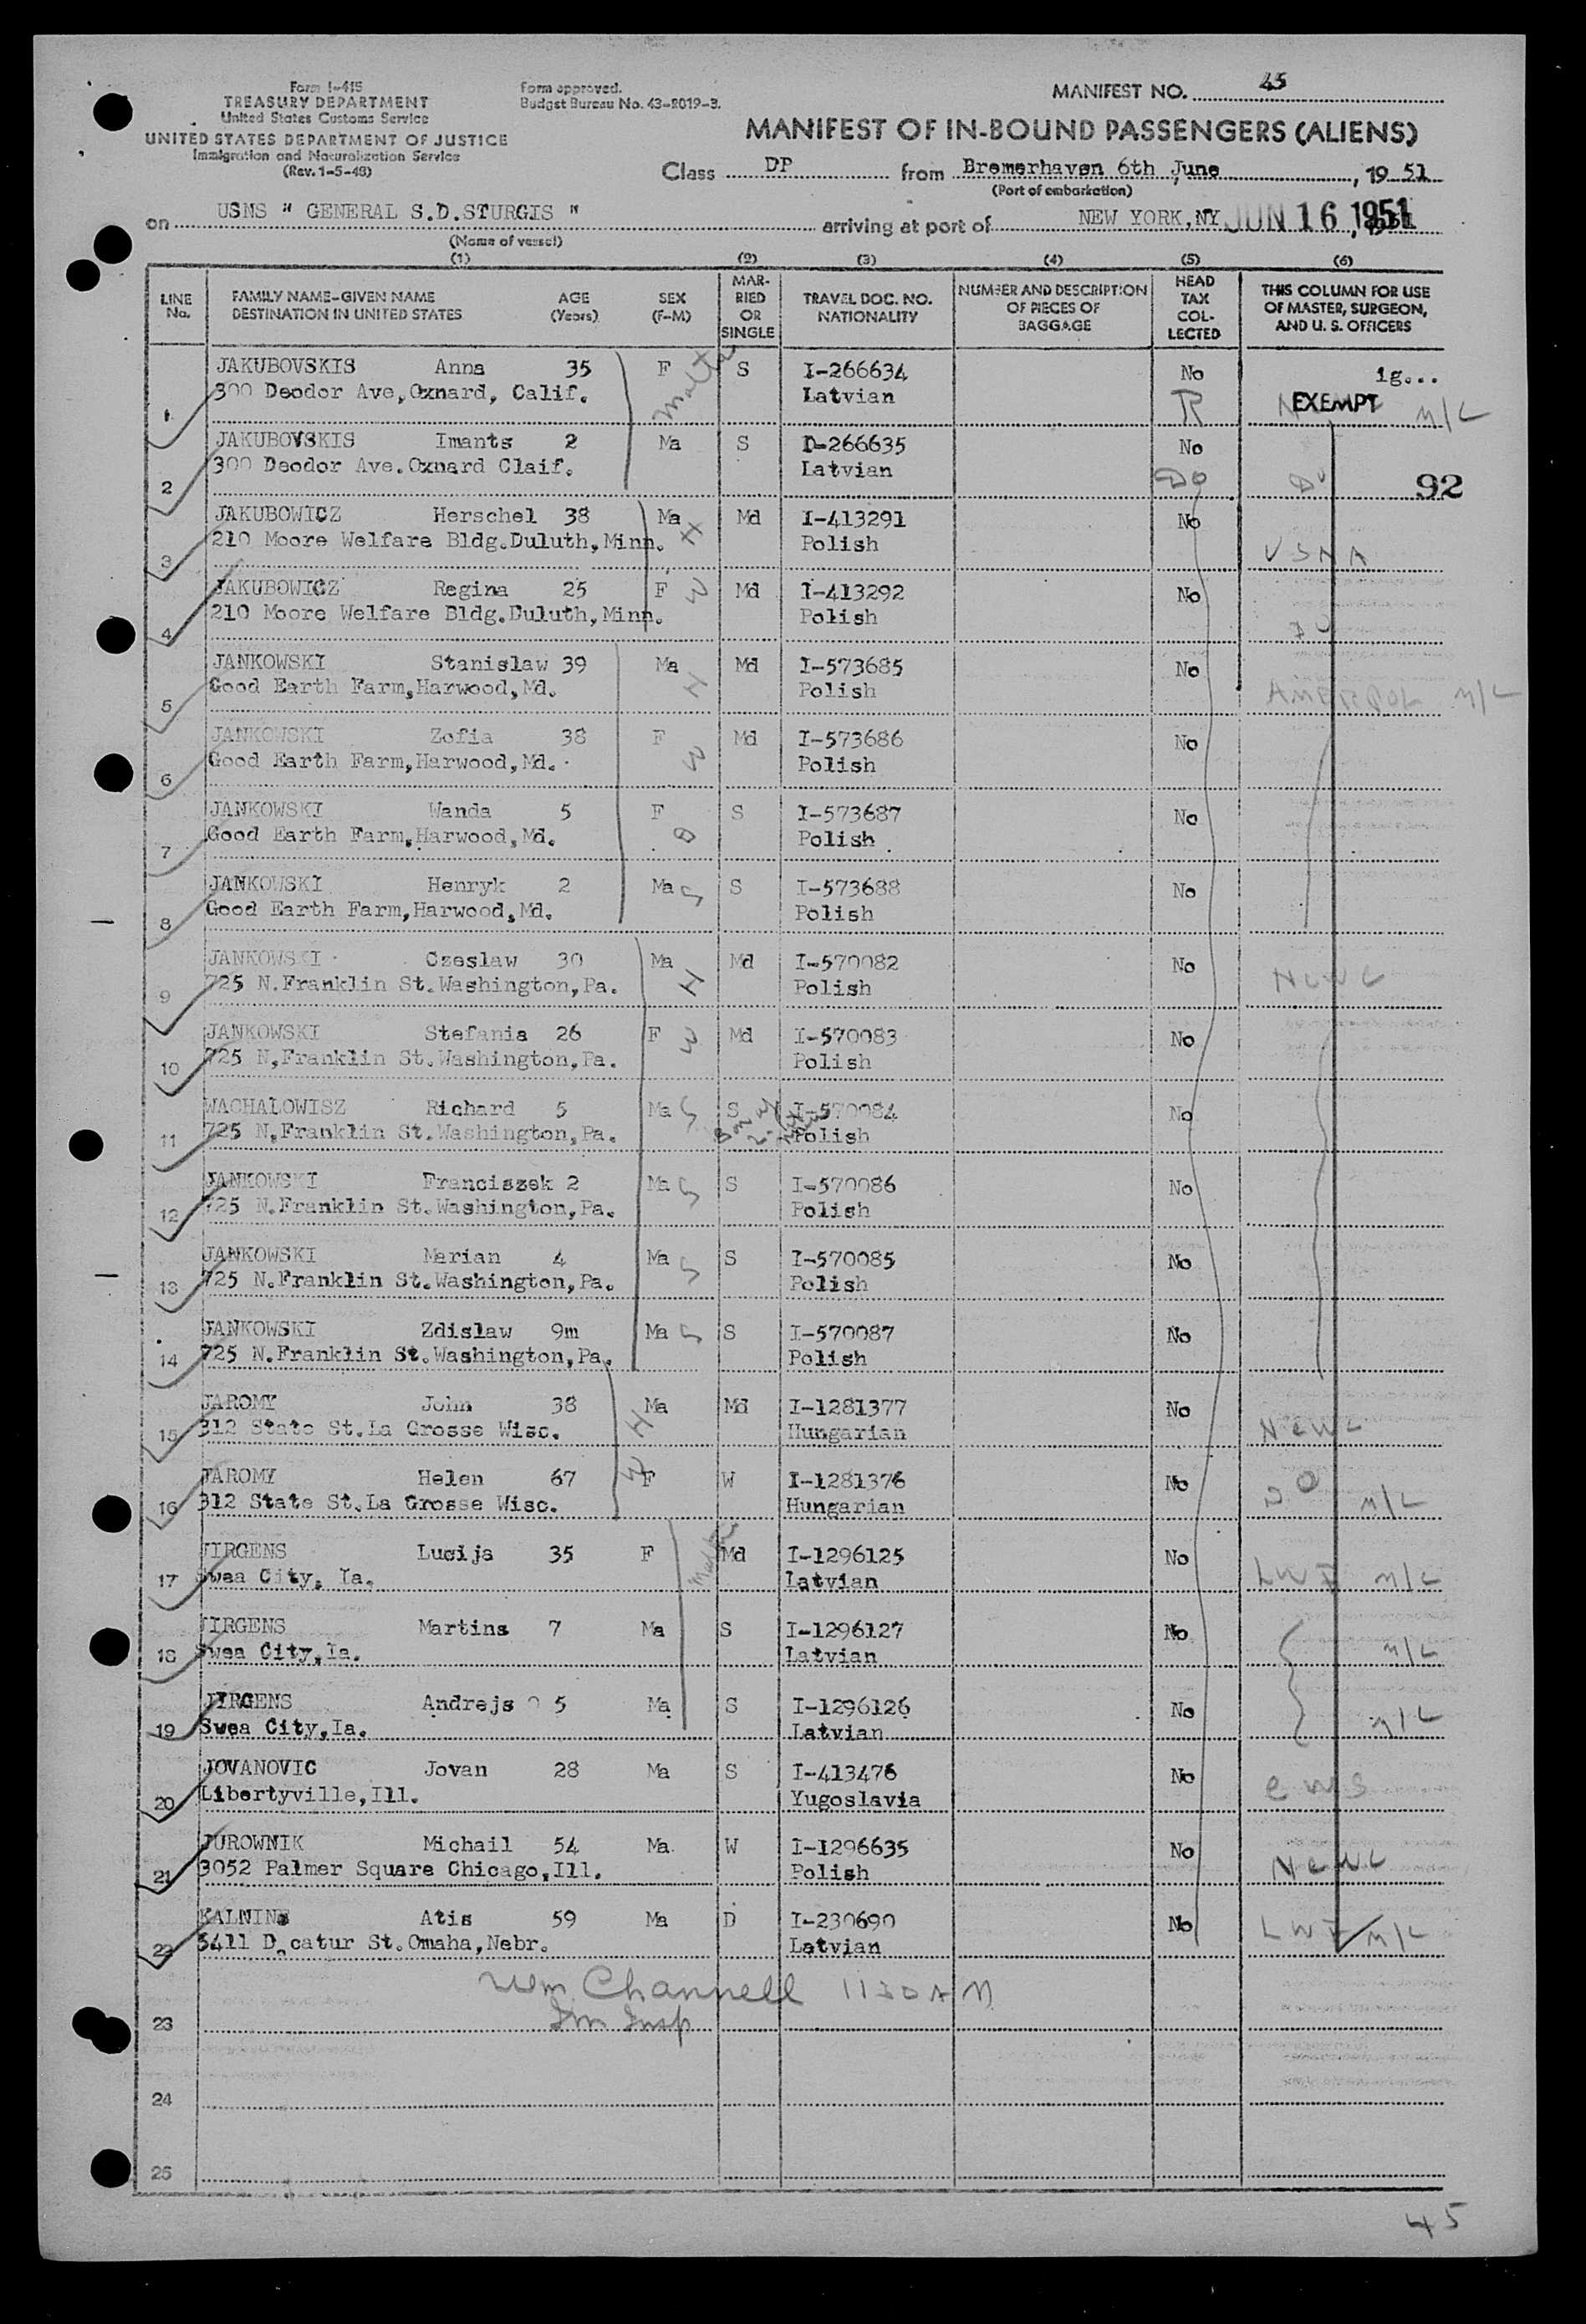 Form I-415
TREASURY DEPARTMENT
United States Customs Service
UNITED STATES DEPARTMENT OF JUSTICE
Immigration and Naturalization Service
(Rev. 1-5-48)
Form approved.
Budget Bureau No. 43-R019-3.
MANIFEST NO. 45
MANIFEST OF IN-BOUND PASSENGERS (ALIENS)
Class DP from Bremerhaven 6th June, 19 51
(Port of embarkation)
on USNS " GENERAL S.D.STURGIS " arriving at port of NEW YORK,NY JUN 16 1951
(Name of vessel)
(1) (2) (3) (4) (5) (6)
LINE No. FAMILY NAME-GIVEN NAME DESTINATION IN UNITED STATES AGE (Years) SEX (F-M) MARRIED OR SINGLE TRAVEL DOC. NO. NATIONALITY NUMBER AND DESCRIPTION OF PIECES OF BAGGAGE HEAD TAX COLLECTED THIS COLUMN FOR USE OF MASTER, SURGEON, AND U. S. OFFICERS
1 JAKUBOVSKIS Anna 35 F S I-266634 No ig...
300 Deodor Ave,Oxnard, Calif. Latvian EXEMPT M/L
2 JAKUBOVSKIS Imants 2 Ma S D-266635 No
300 Deodor Ave.Oxnard Claif. Latvian Do Do 92
3 JAKUBOWICZ Herschel 38 Ma H Md I-413291 No
210 Moore Welfare Bldg.Duluth,Minn. Polish USNA
4 JAKUBOWICZ Regina 25 F W Md I-413292 No
210 Moore Welfare Bldg.Duluth,Minn. Polish Do
5 JANKOWSKI Stanislaw 39 Ma H Md I-573685 No
Good Earth Farm,Harwood,Md. Polish AMERPOL M/L
6 JANKOWSKI Zofia 38 F W Md I-573686 No
Good Earth Farm,Harwood,Md. Polish
7 JANKOWSKI Wanda 5 F D S I-573687 No
Good Earth Farm,Harwood,Md. Polish
8 JANKOWSKI Henryk 2 Ma S S I-573688 No
Good Earth Farm,Harwood,Md. Polish
9 JANKOWSKI Czeslaw 30 Ma H Md I-570082 No
725 N.Franklin St.Washington,Pa. Polish NCWC
10 JANKOWSKI Stefania 26 F W Md I-570083 No
725 N,Franklin St.Washington,Pa. Polish
11 WACHALOWISZ Richard 5 Ma S S I-570084 No
725 N,Franklin St.Washington,Pa. Polish
12 JANKOWSKI Franciszek 2 Ma S S I-570086 No
725 N.Franklin St.Washington,Pa. Polish
13 JANKOWSKI Marian 4 Ma S S I-570085 No
725 N.Franklin St.Washington,Pa. Polish
14 JANKOWSKI Zdislaw 9m Ma S S I-570087 No
725 N.Franklin St.Washington,Pa. Polish
15 JAROMY John 38 Ma H Md I-1281377 No
312 State St.La Grosse Wisc. Hungarian NCWC
16 JAROMY Helen 67 W F W I-1281376 No
312 State St.La Grosse Wisc. Hungarian DO M/L
17 JIRGENS Lucija 35 F Md I-1296125 No
Swea City, Ia. Latvian LWF M/L
18 JIRGENS Martins 7 Ma S I-1296127 No
Swea City,Ia. Latvian M/L
19 JIRGENS Andrejs 5 Ma S I-1296126 No
Swea City,Ia. Latvian M/L
20 JOVANOVIC Jovan 28 Ma S I-413476 No
Libertyville,Ill. Yugoslavia CWS
21 JUROWNIK Michail 54 Ma. W I-1296635 No
3052 Palmer Square Chicago,Ill. Polish NCWC
22 KALNINS Atis 59 Ma D I-230690 No
5411 D.catur St.Omaha,Nebr. Latvian LWF M/L
Wm Channell 1130 AM
23 Im Insp
24
25
45